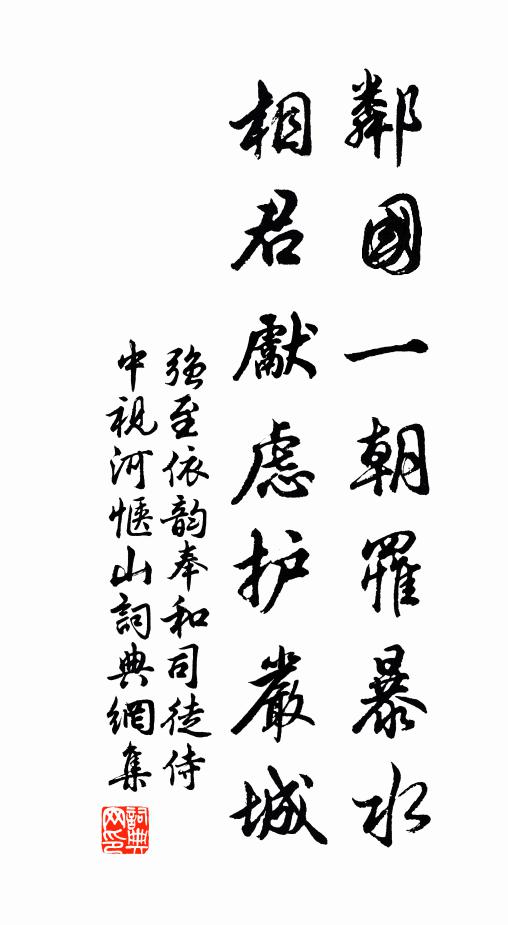 鄰國一朝罹暴水
相君獻慮护嚴城
强至依韵奉和司徒侍
中視河惬山詞典網集
詞典
网印